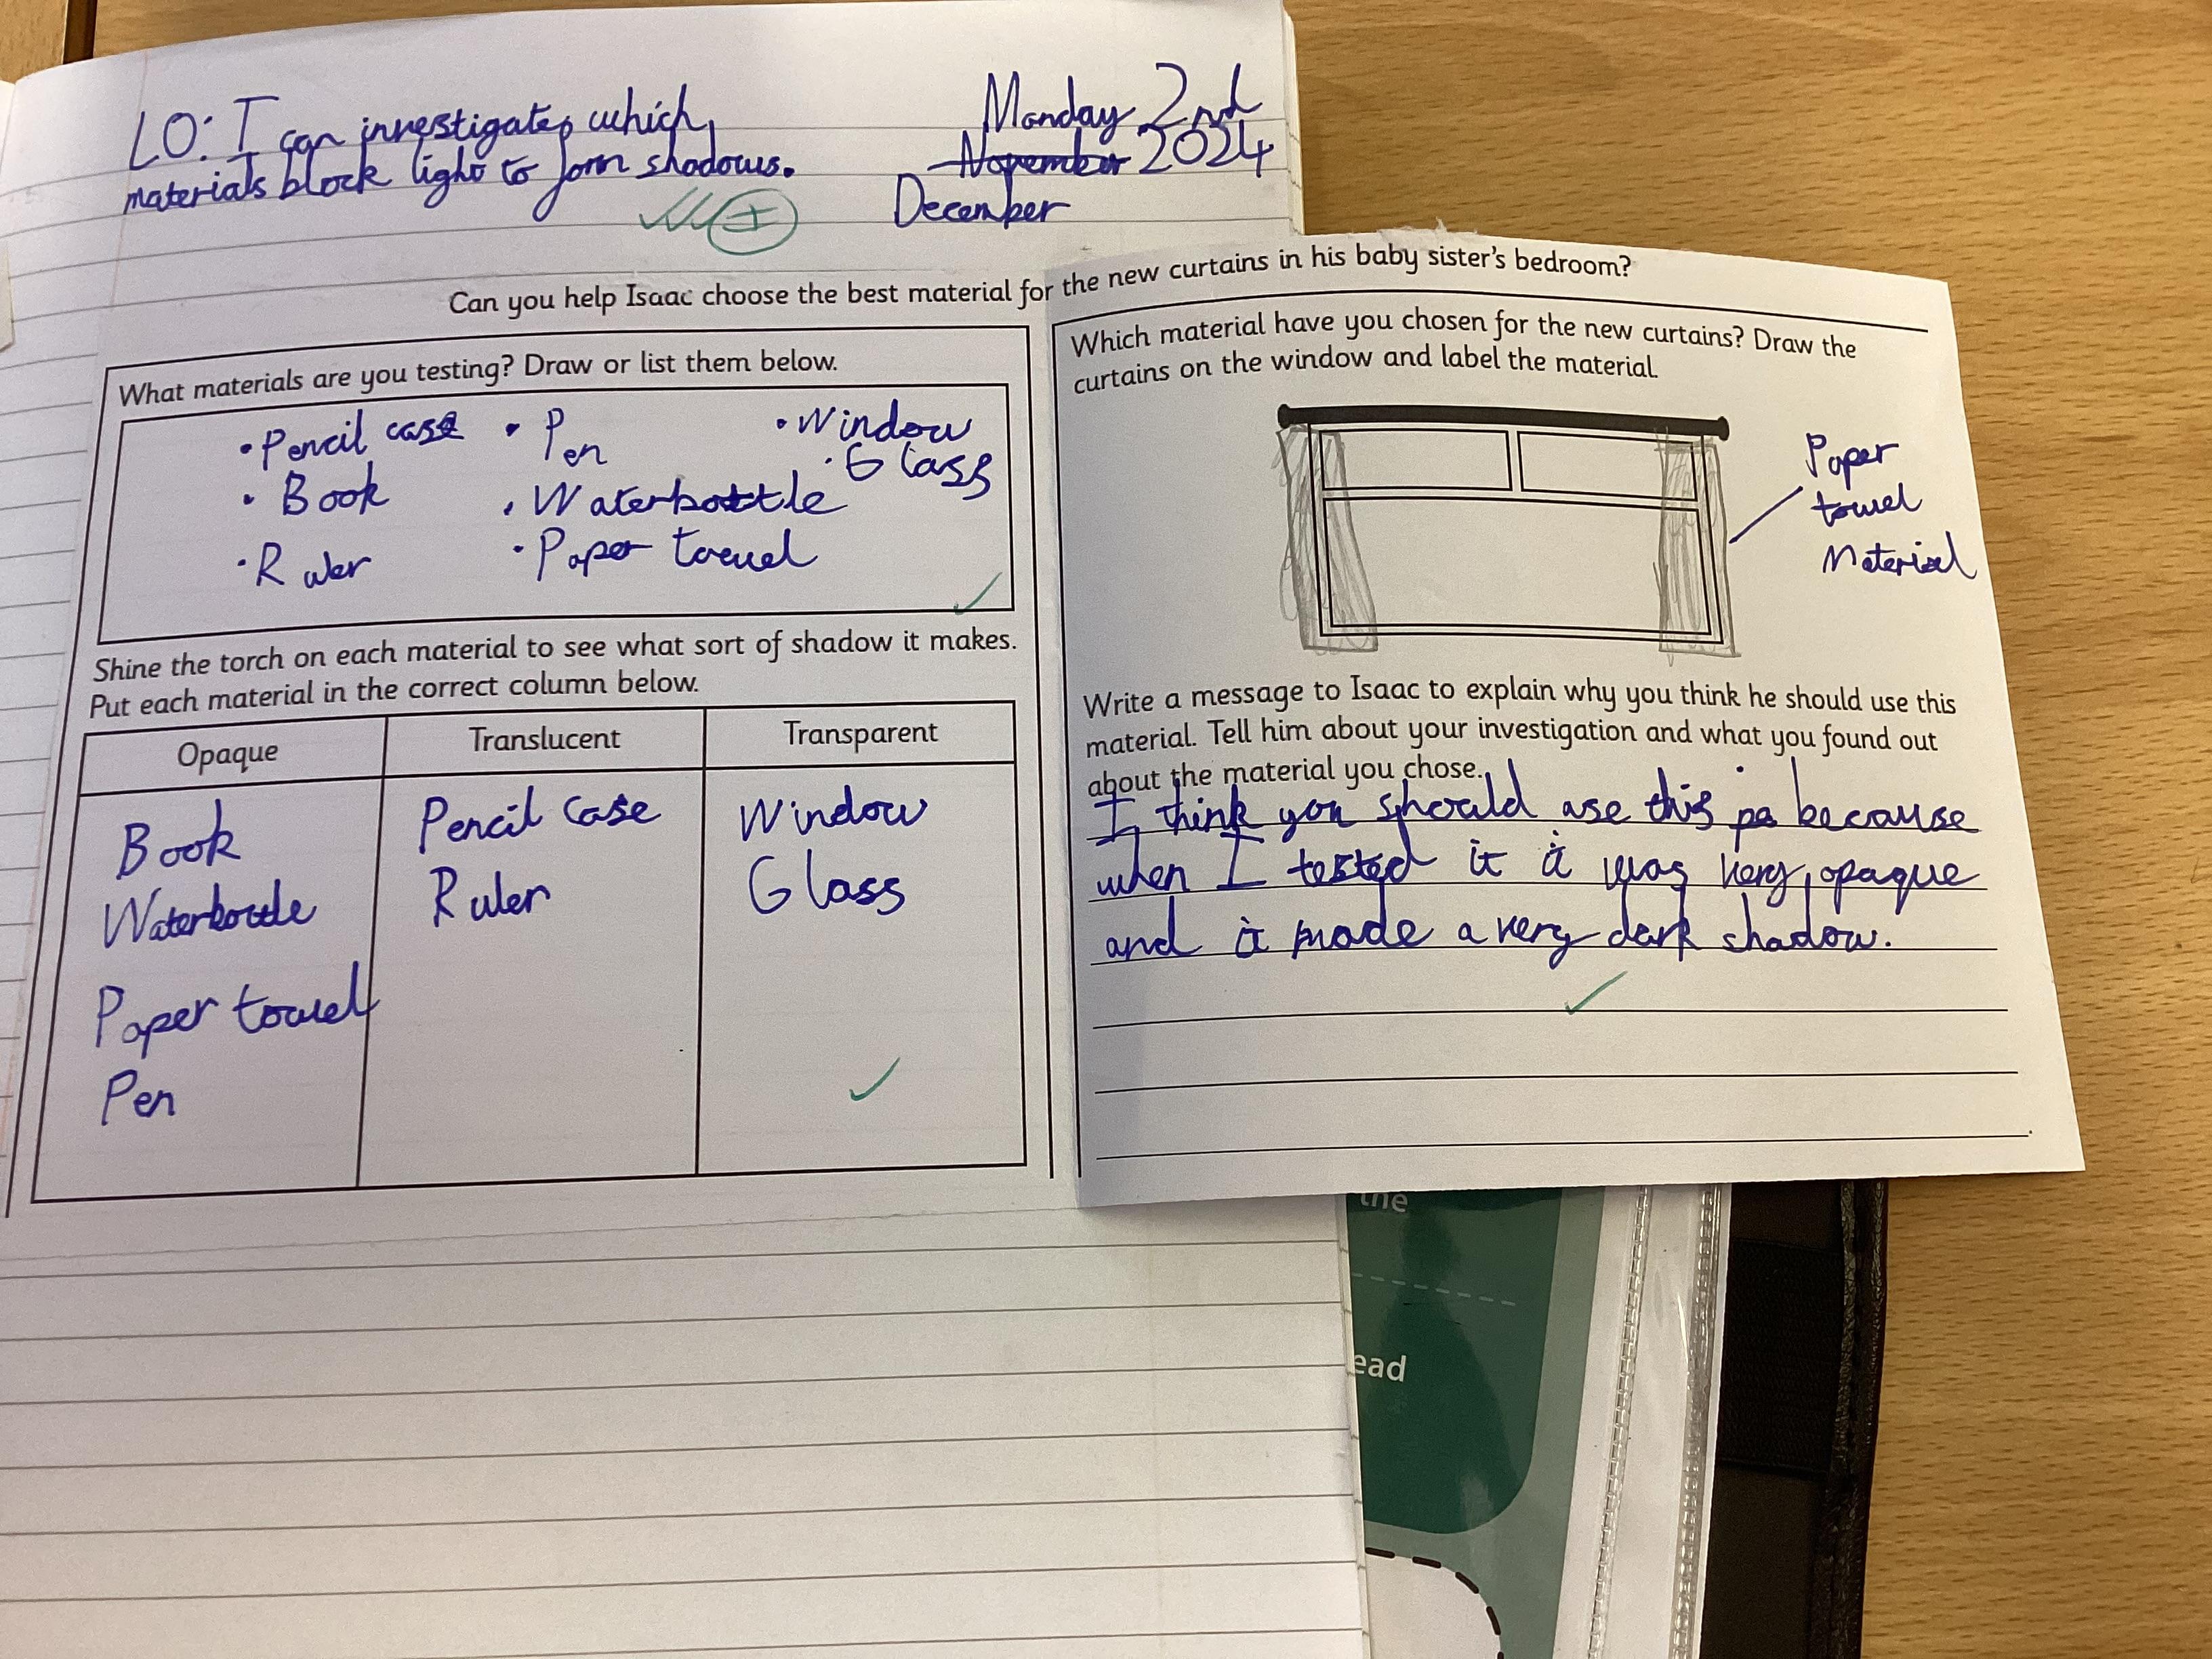 LO: I can investigate which
materials block light to form shadows.
Monday 2nd
November 2024
December
Can you help Isaac choose the best material for the new curtains in his baby sister's bedroom?
What materials are you testing? Draw or list them below.
• Pencil case
• Book
• Ruler
• Pen
• Waterbottle
• Paper towel
• Window
• Glass
Shine the torch on each material to see what sort of shadow it makes.
Put each material in the correct column below.
Opaque
Book
Waterbottle
Paper towel
Pen
Translucent
Pencil case
Ruler
Transparent
Window
Glass
Which material have you chosen for the new curtains? Draw the
curtains on the window and label the material.
Paper
towel
Material
Write a message to Isaac to explain why you think he should use this
material. Tell him about your investigation and what you found out
about the material you chose.
I think you should use this pa because
when I tested it it was very opaque
and it made a very dark shadow.
the
ead